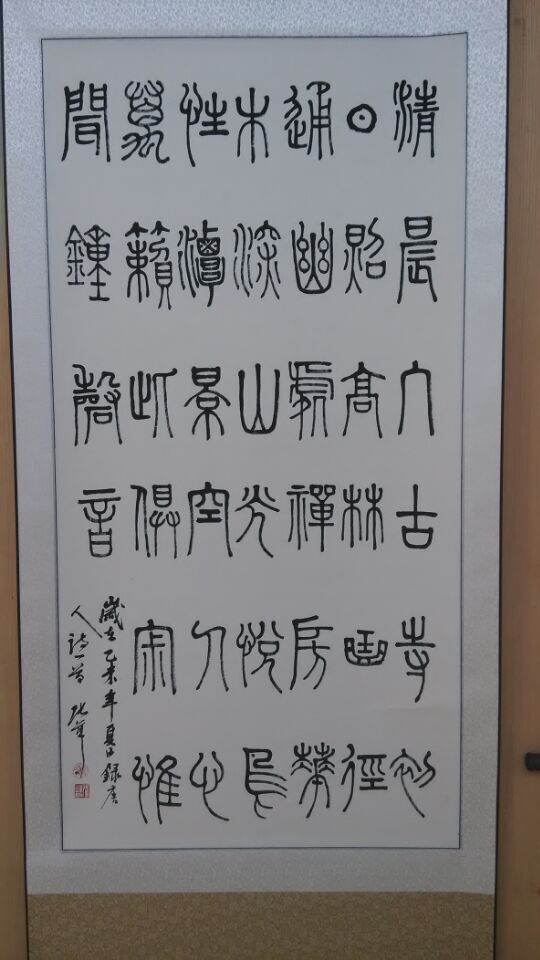 清晨入古寺初
日照高林曲徑
通幽處禪房華
木深山光悅鳥
性潭景空人心
萬籟此俱寂惟
聞鐘磬音
歲在乙未年夏日錄唐
人詩一首